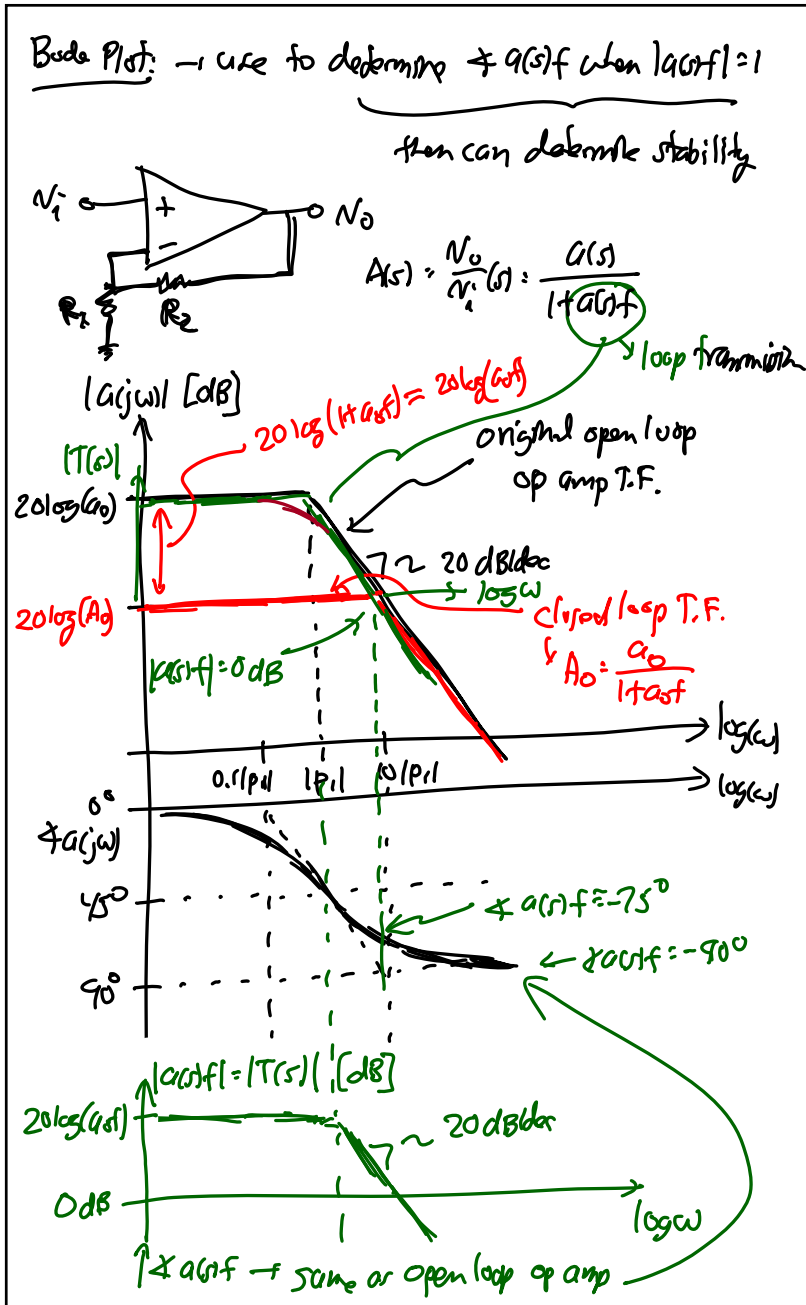 Bode Plot: → use to determine ∡ a(s)f when |a(s)f| = 1
then can determine stability
Ni
+
-
No
R1
R2
A(s) = No/Ni (s) = a(s)/(1+a(s)f)
loop transmission
|a(jω)| [dB]
20log(1+a0f) ≈ 20log(a0f)
|T(s)|
original open loop
op amp T.F.
20log(a0)
20 dB/dec
logω
20log(A0)
closed loop T.F.
|a(s)f| = 0dB
A0 = a0/(1+a0f)
log(ω)
0.1|p1|
|p1|
10|p1|
log(ω)
0°
∡a(jω)
45°
∡ a(s)f = -75°
∡a(s)f = -90°
90°
|a(s)f| = |T(s)| [dB]
20log(a0f)
20dB/dec
0dB
logω
∡ a(s)f → same as open loop op amp